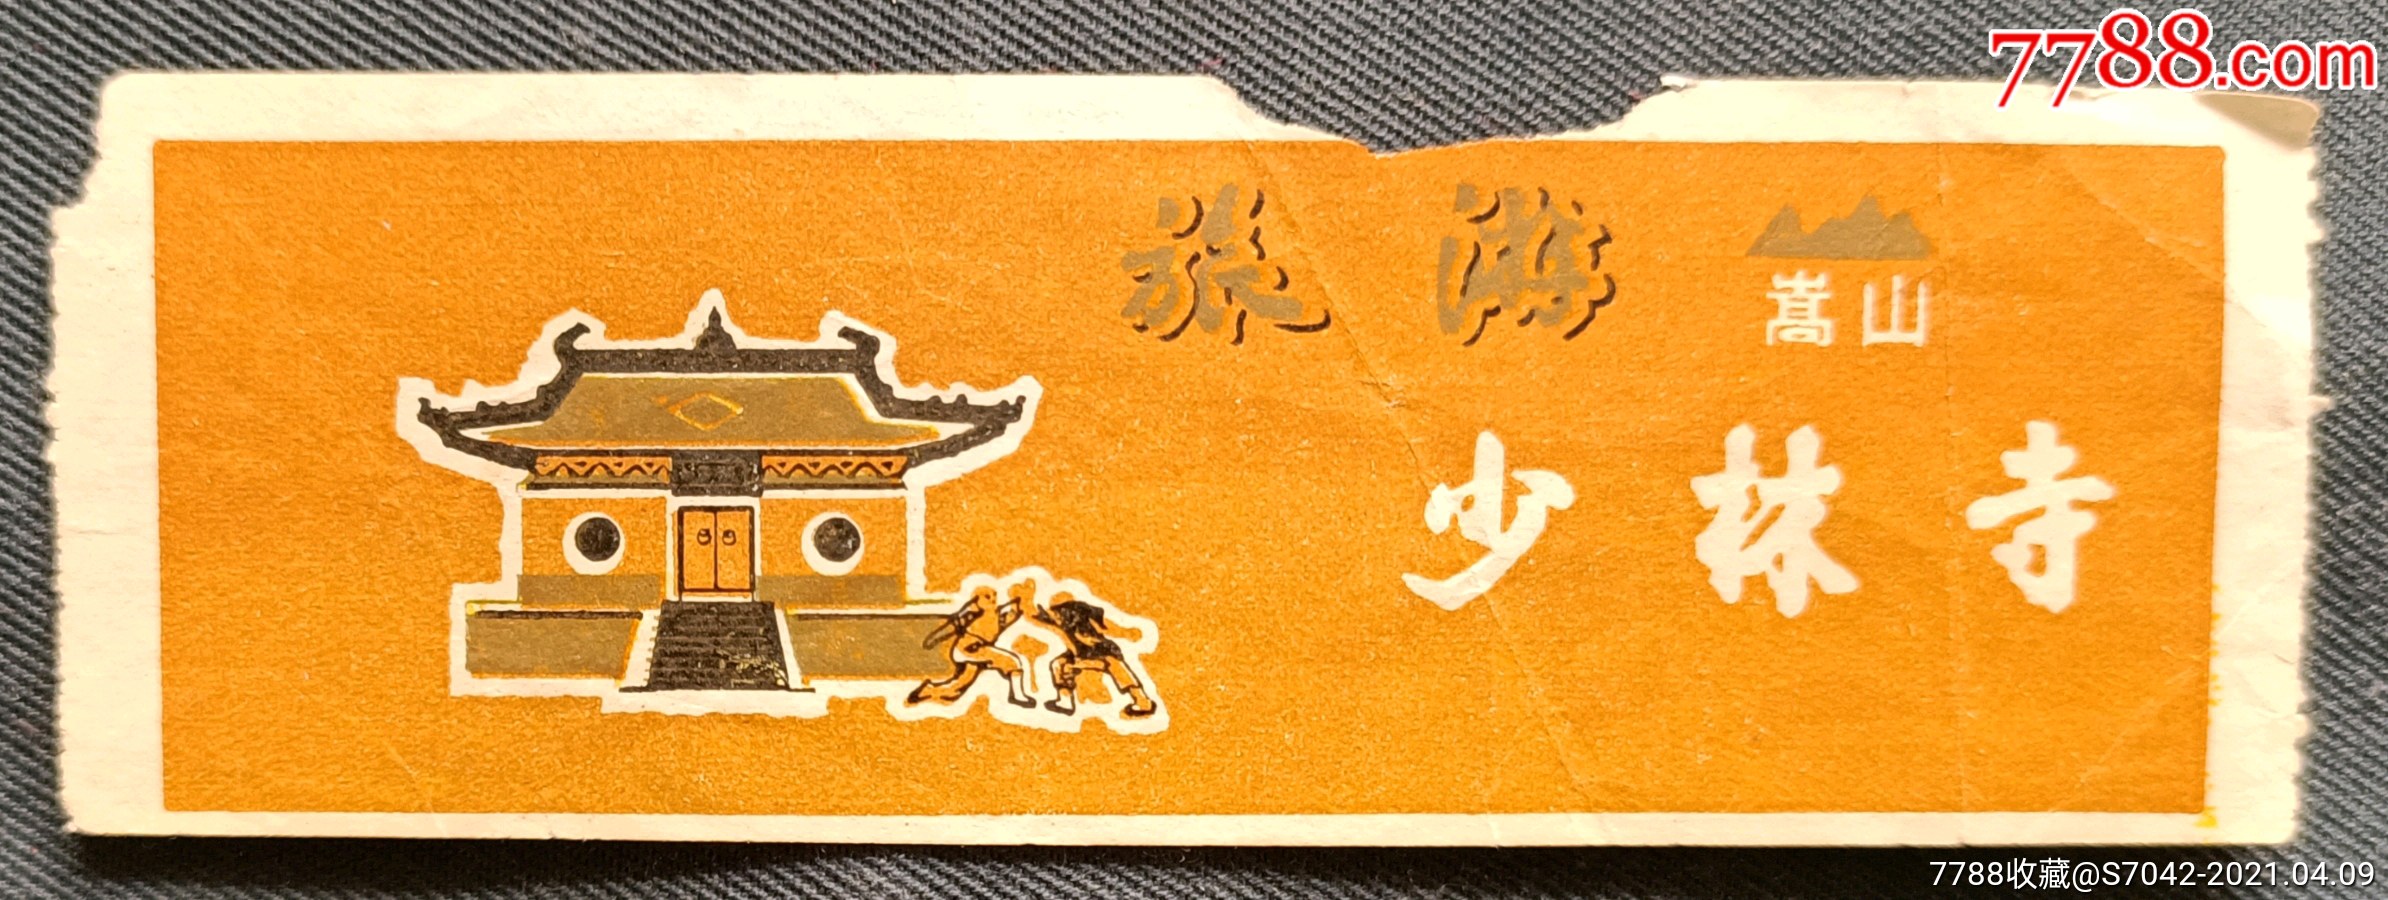 7788.com
旅游
嵩山
少林寺
7788收藏@S7042-2021.04.09